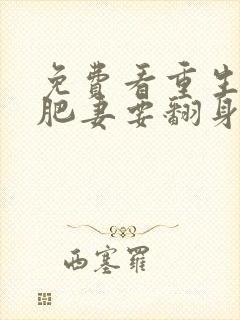 免费看重生
肥妻要翻身
西塞罗